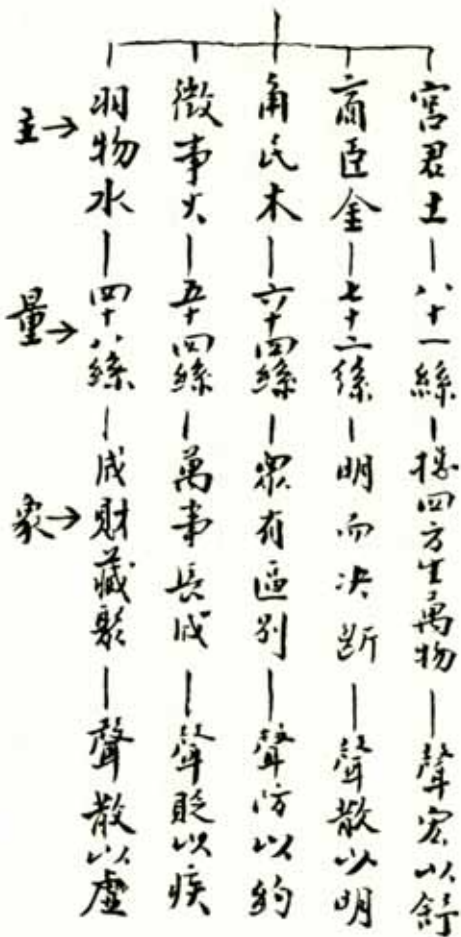 宮君土—八十一絲—揔四方生萬物—聲宏以舒
商臣金—七十二絲—明而决斷—聲散以明
角民木—六十四絲—眾有區別—聲防以約
徵事火—五十四絲—萬事長成—聲貶以疾
羽物水—四十八絲—成財藏聚—聲散以虛
主→
量→